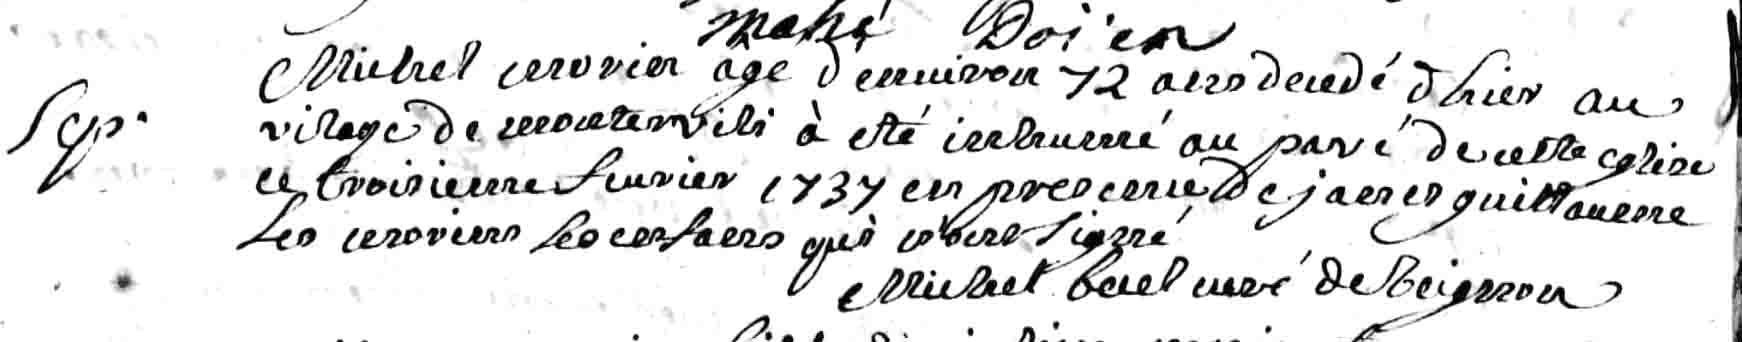 mahé Doi'en
Sep. Michel cerovier age d'environ 72 ans decedé d'hier au
vilage de à eté inhumé au pavé de cette eglise
ce troisieme fevrier 1737 en presence de james guillaume
les ceroviers ses enfaens qui n'ont signé
Michel curé de beignon